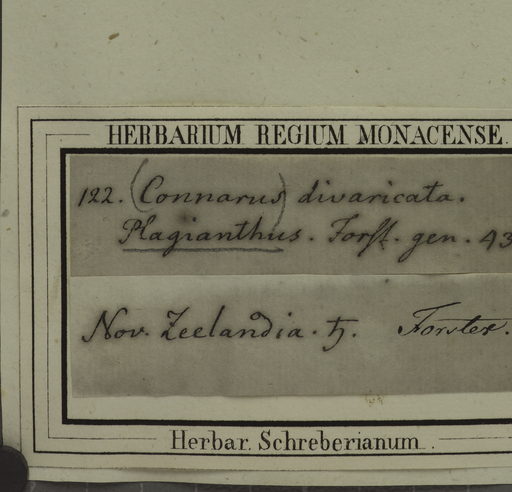 HERBARIUM REGIUM MONACENSE.
122. (Connarus) divaricata.
Plagianthus. Forst. gen. 43
Nov. Zeelandia. ♄. Forster.
Herbar. Schreberianum.